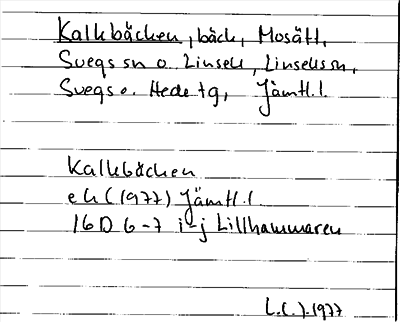 Kalkbäcken, bäck, Mosätt,
Svegs sn o. Linsell, Linsells sn,
Svegs o. Hede tg, Jämtl. l.
Kalkbäcken
ek (1977) Jämtl. l
16D 6-7 i-j Lillhammaren
1977